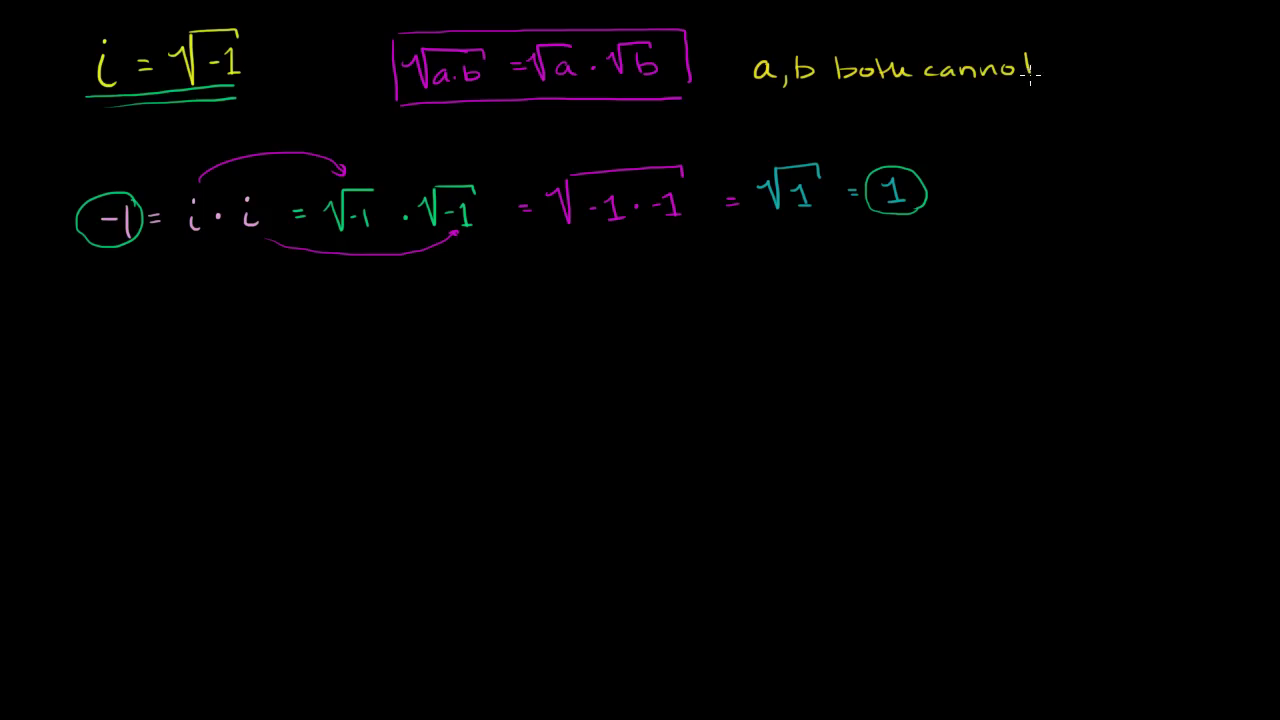 i = √-1 √a·b = √a · √b a, b both cannot
-1 = i · i = √-1 · √-1 = √-1 · -1 = √1 = 1